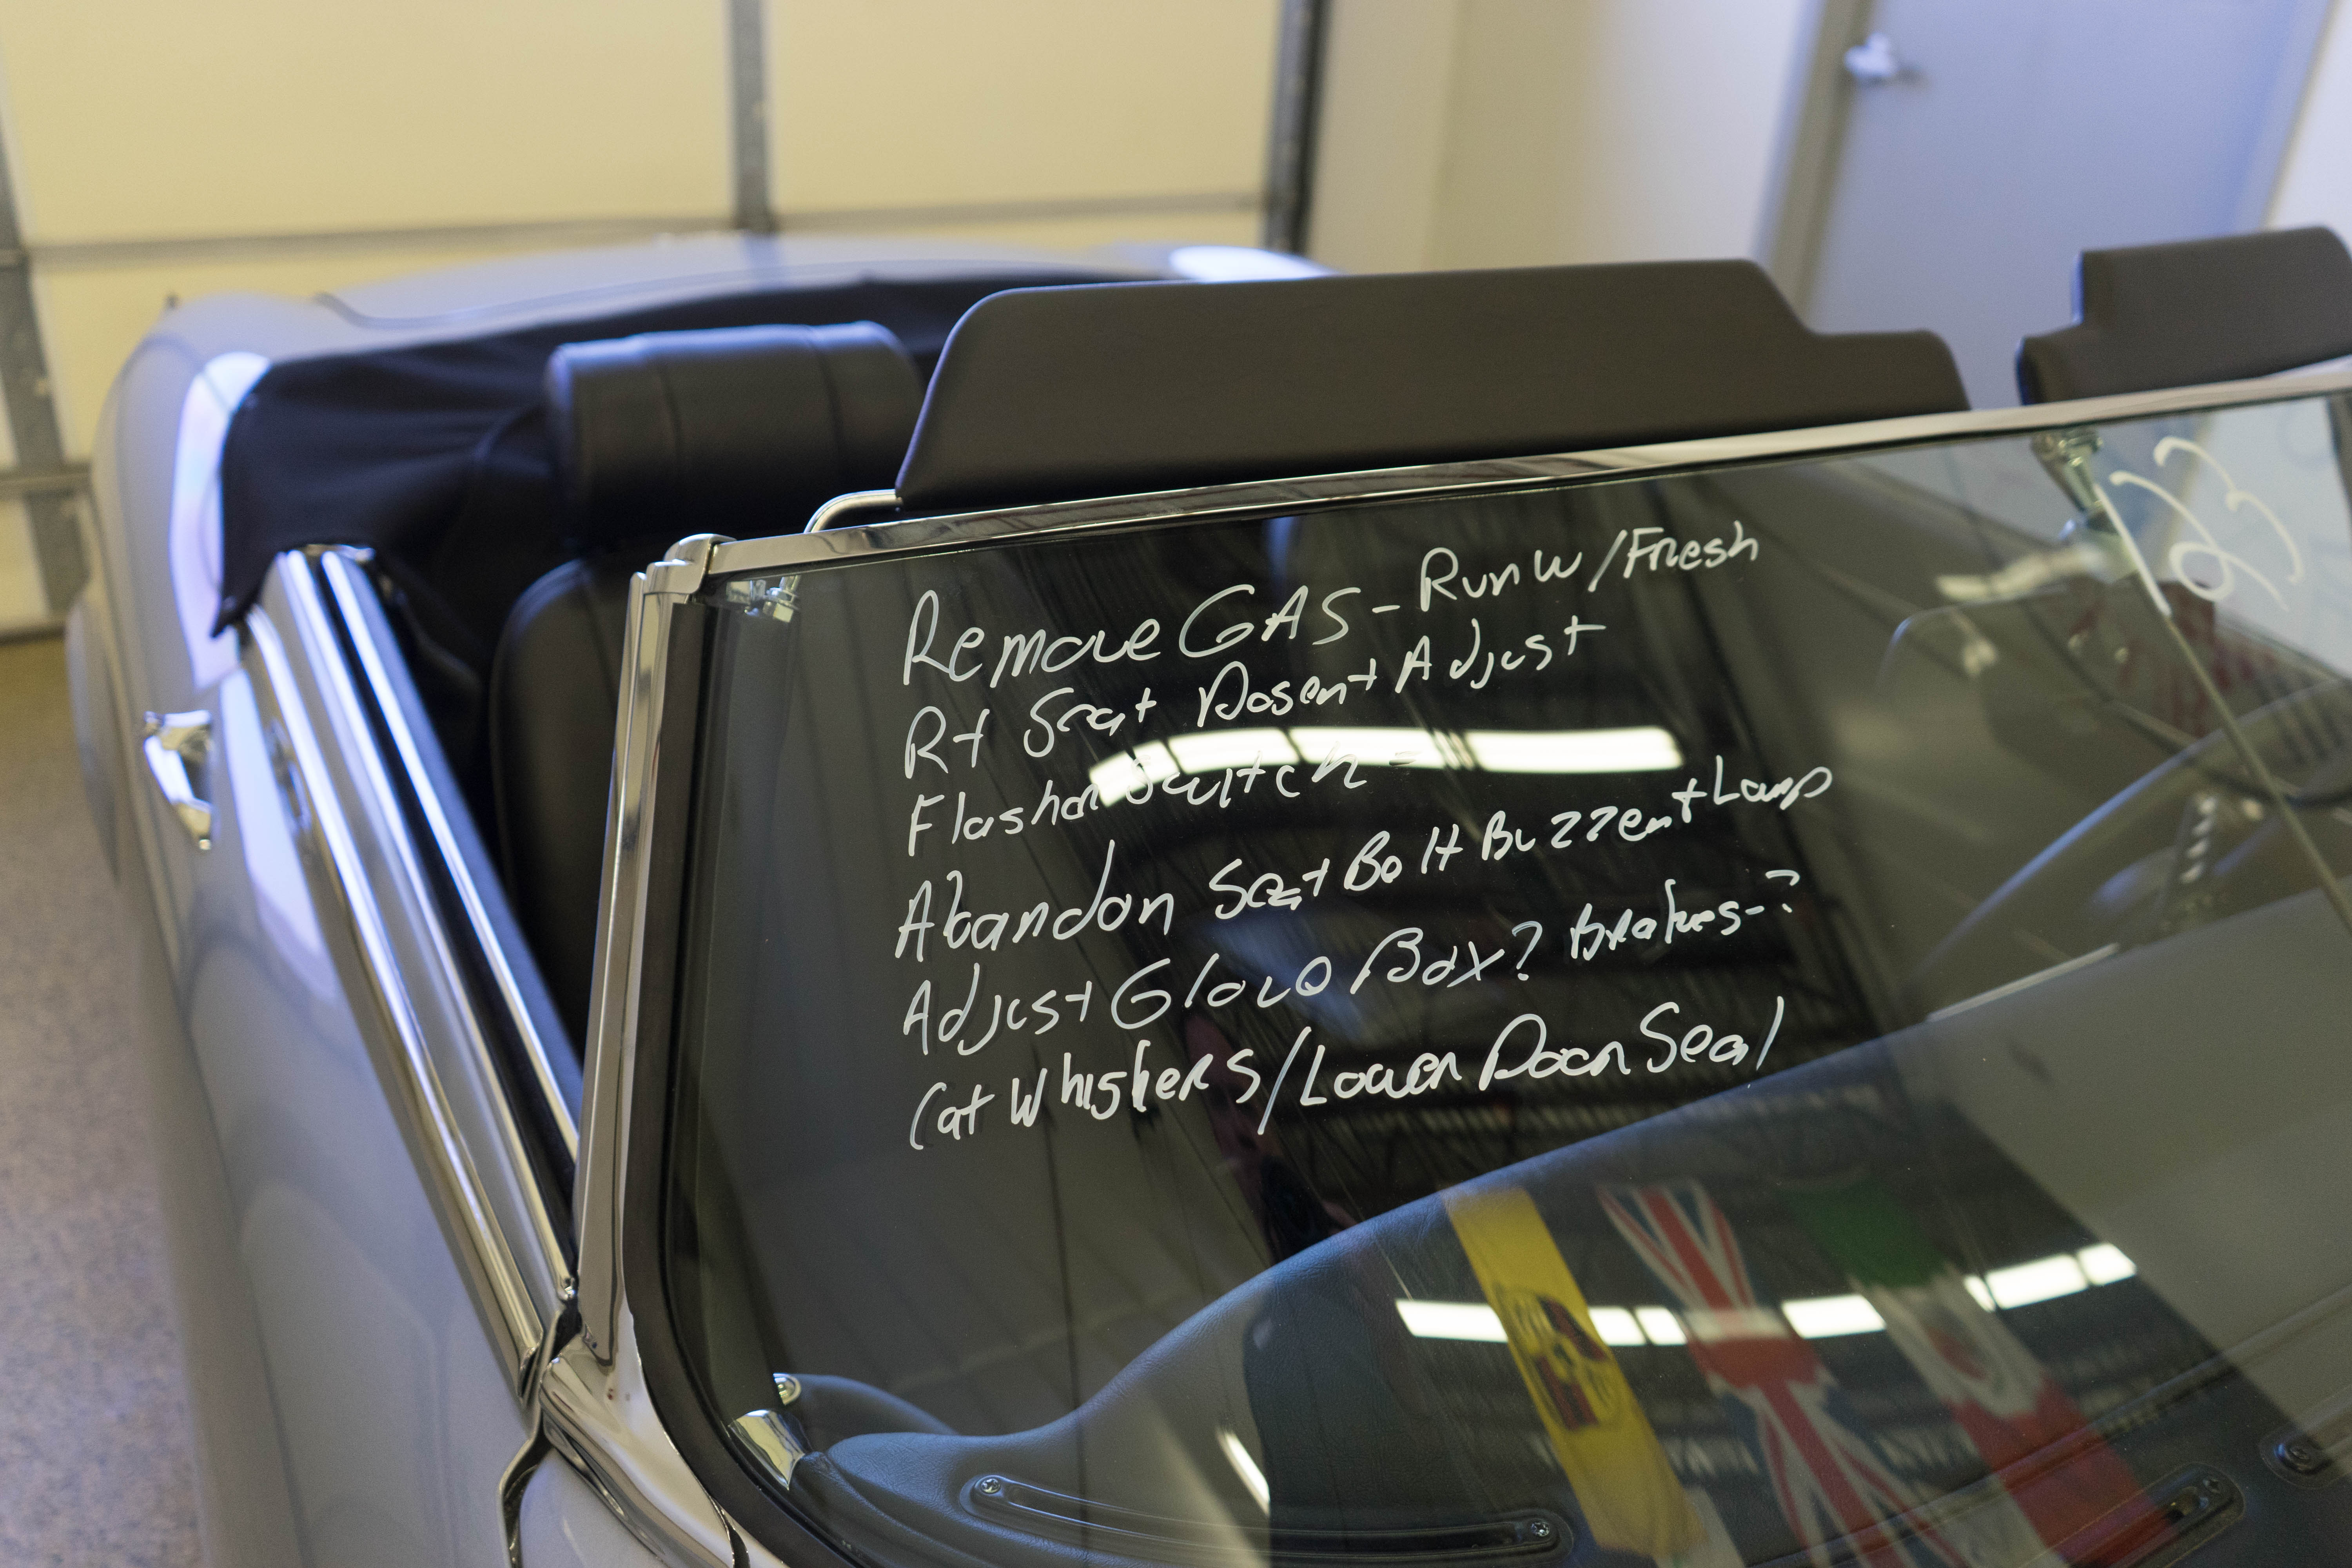 Remove GAS - Run W/Fresh
Rt Seat Dosent Adjust
Flasher Switch -
Abandon Seat Belt Buzzer + Lamp
Adjust Glove Box? Brakes-?
Cat Whiskers/Lower Door Seal
23